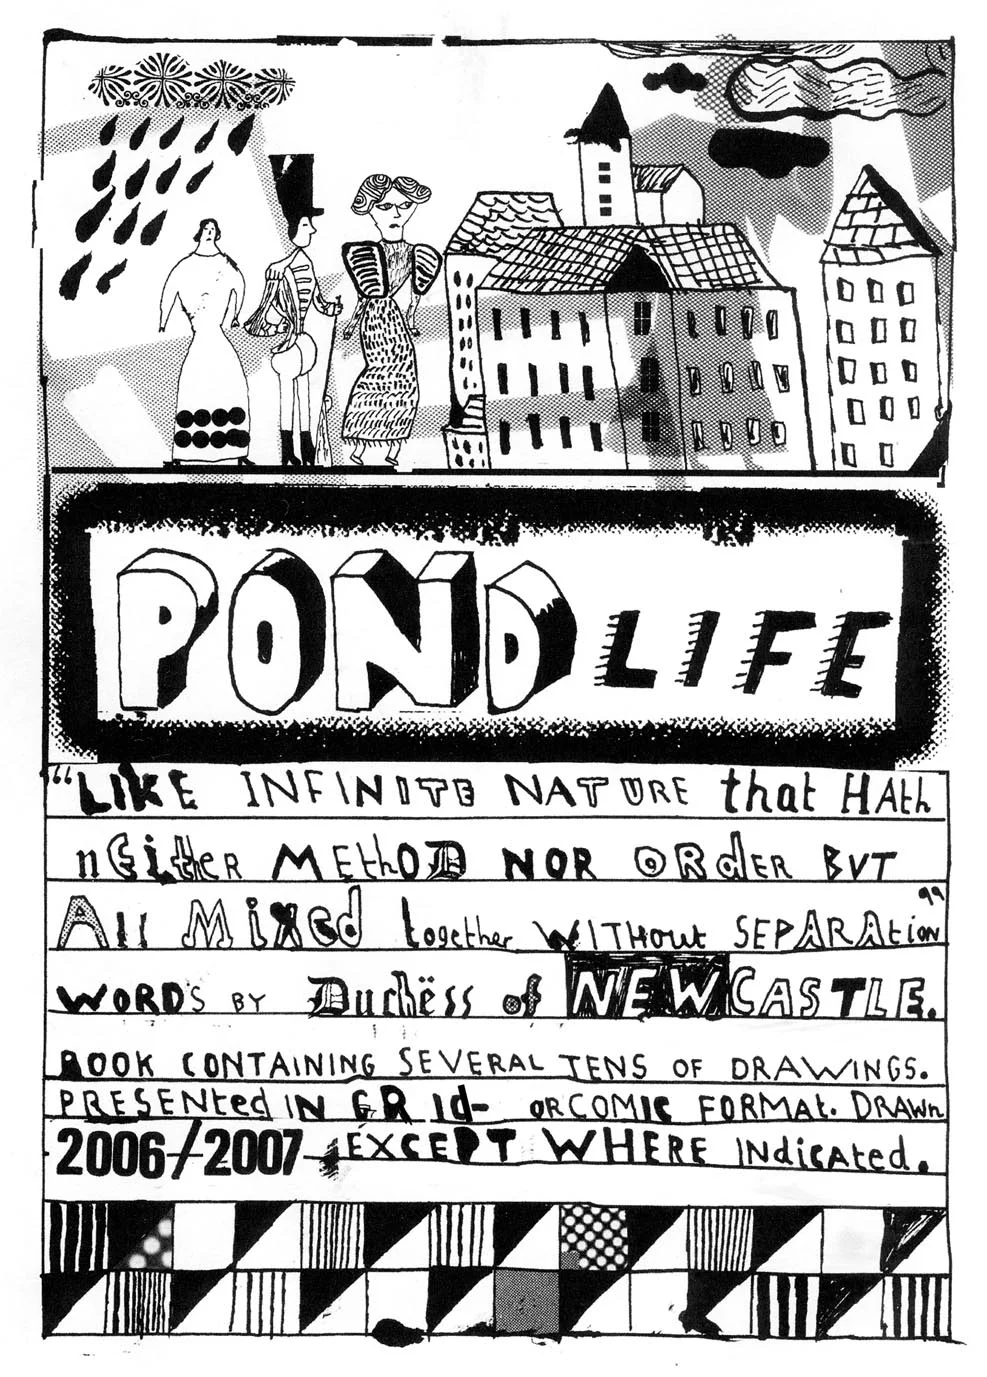 POND LIFE
“LIKE INFINITE NATURE that HAth
nEither MEthOD NOR ORdER BVT
All MixEd together WITHout SEPARAtion”
WORD'S BY Duchëss of NEWCASTLE.
BOOK CONTAINING SEVERAL TENS OF DRAWINGS.
PRESENted IN GRId- ORCOMIC FORMAt. DRAWn
2006/2007 EXCEPT WHERE INdicAted.